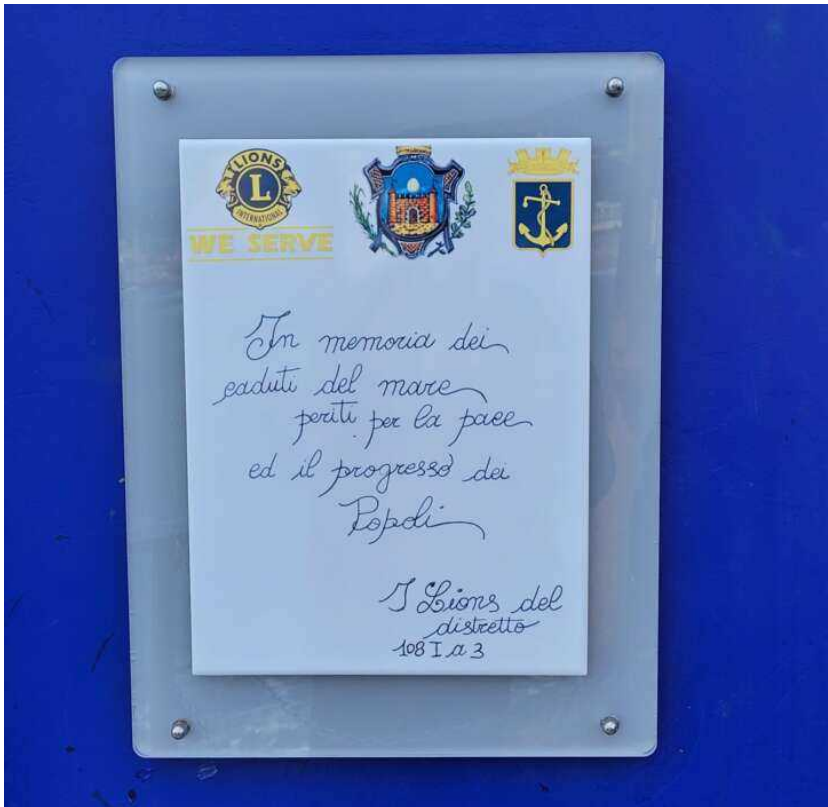 LIONS
L
INTERNATIONAL
WE SERVE
In memoria dei
caduti del mare
periti per la pace
ed il progresso dei
Popoli
I Lions del
distretto
108 I a 3